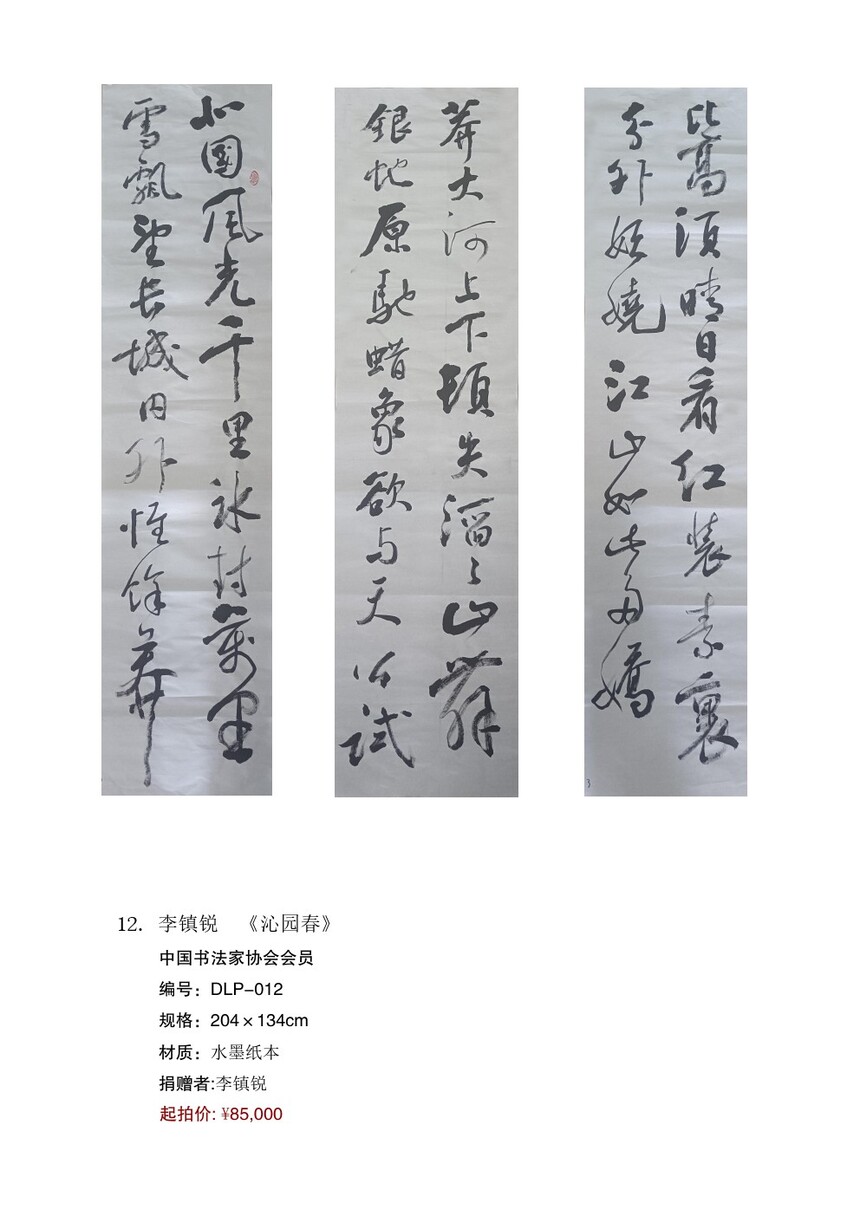 北國風光千里冰封萬里
雪飄望长城内外惟餘莽
莽大河上下頓失滔〻山舞
銀蛇原馳蜡象欲与天公試
比高須晴日看紅装素裹
分外妖嬈江山如此多嬌
3
12. 李镇锐 《沁园春》
中国书法家协会会员
编号：DLP-012
规格：204×134cm
材质：水墨纸本
捐赠者:李镇锐
起拍价: ¥85,000